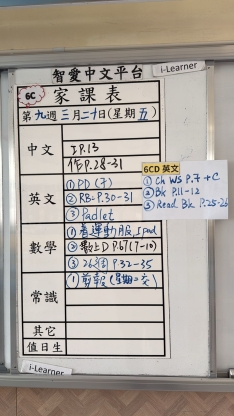 i-Learner
智愛中文平台
6C 家課表
第九週三月二十日(星期五)
中文
工P.13
作P.28-31
6CD 英文
① Ch WS P.7 + C
② Bk P.11-12
③ Read Bk P.25-26
英文
① PD (7)
② RB= P.30-31
③ Padlet
數學
① 着運動服, ipad
② 數上D P.67(7-10)
③ 26週 P.32-35
常識
① 剪報(星期二交)
其它
值日生
i-Learner